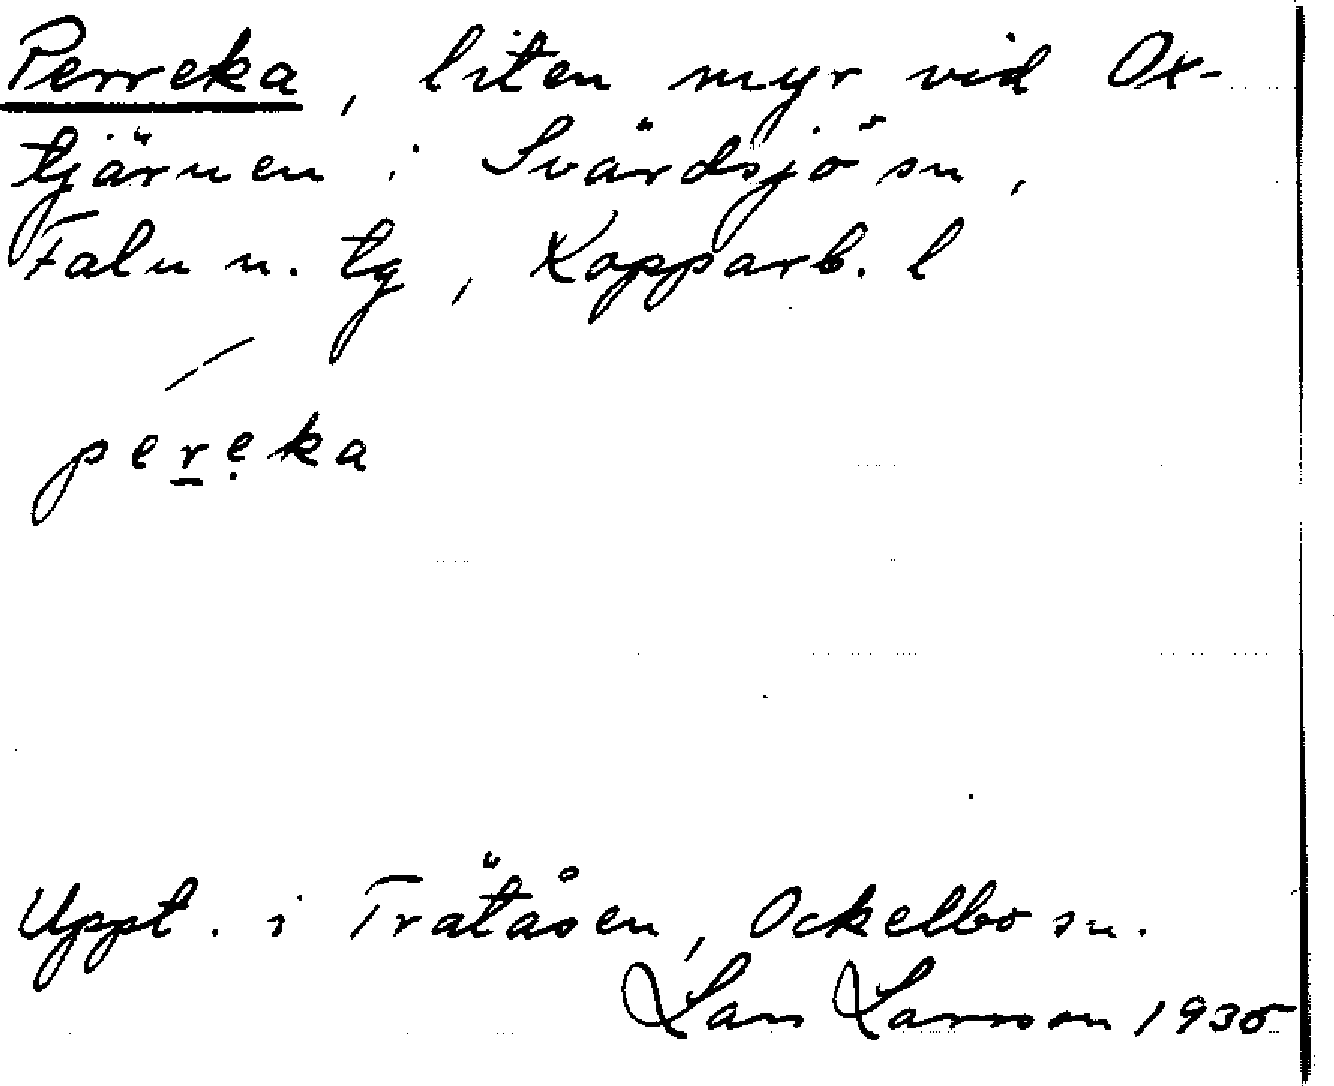 Perreka, liten myr vid Ox-
tjärnen i Svärdsjö sn,
Falu n. tg, Kopparb. l
pe̲rẹka
Uppt. i Trätåsen, Ockelbo sn.
Lars Larsson 1935